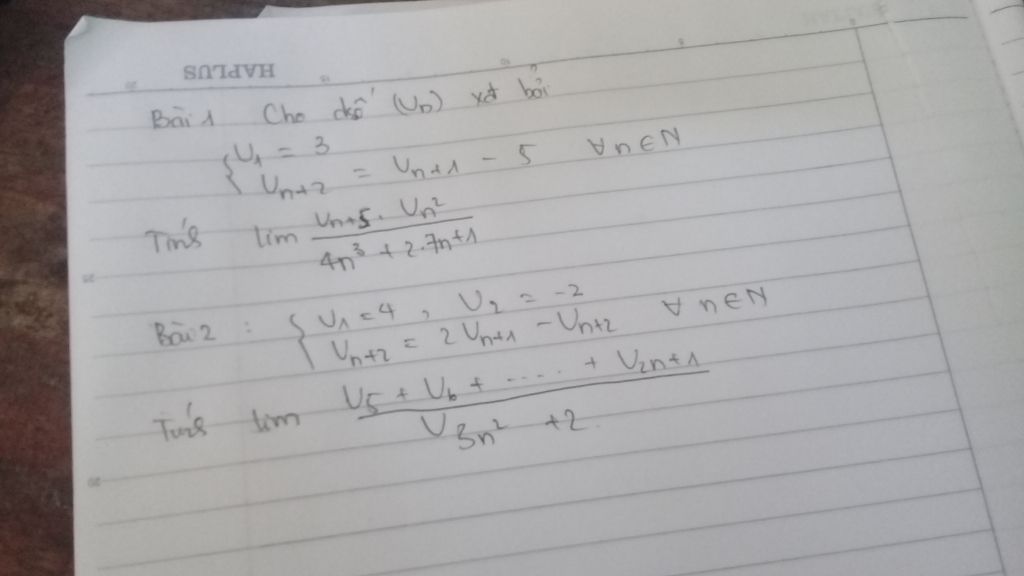 HAPLUS
Bài 1 Cho dsố (Un) xđ bởi
{ U1 = 3
Un+2 = Un+1 - 5 ∀n∈N
Tính lim (Un+5 . Un²) / (4n³ + 2.7n+1)
Bài 2 : { U1 = 4 , U2 = -2
Un+2 = 2Un+1 - Un+2 ∀ n∈N
Tính lim (U5 + U6 + ..... + U2n+1) / (U3n² + 2)